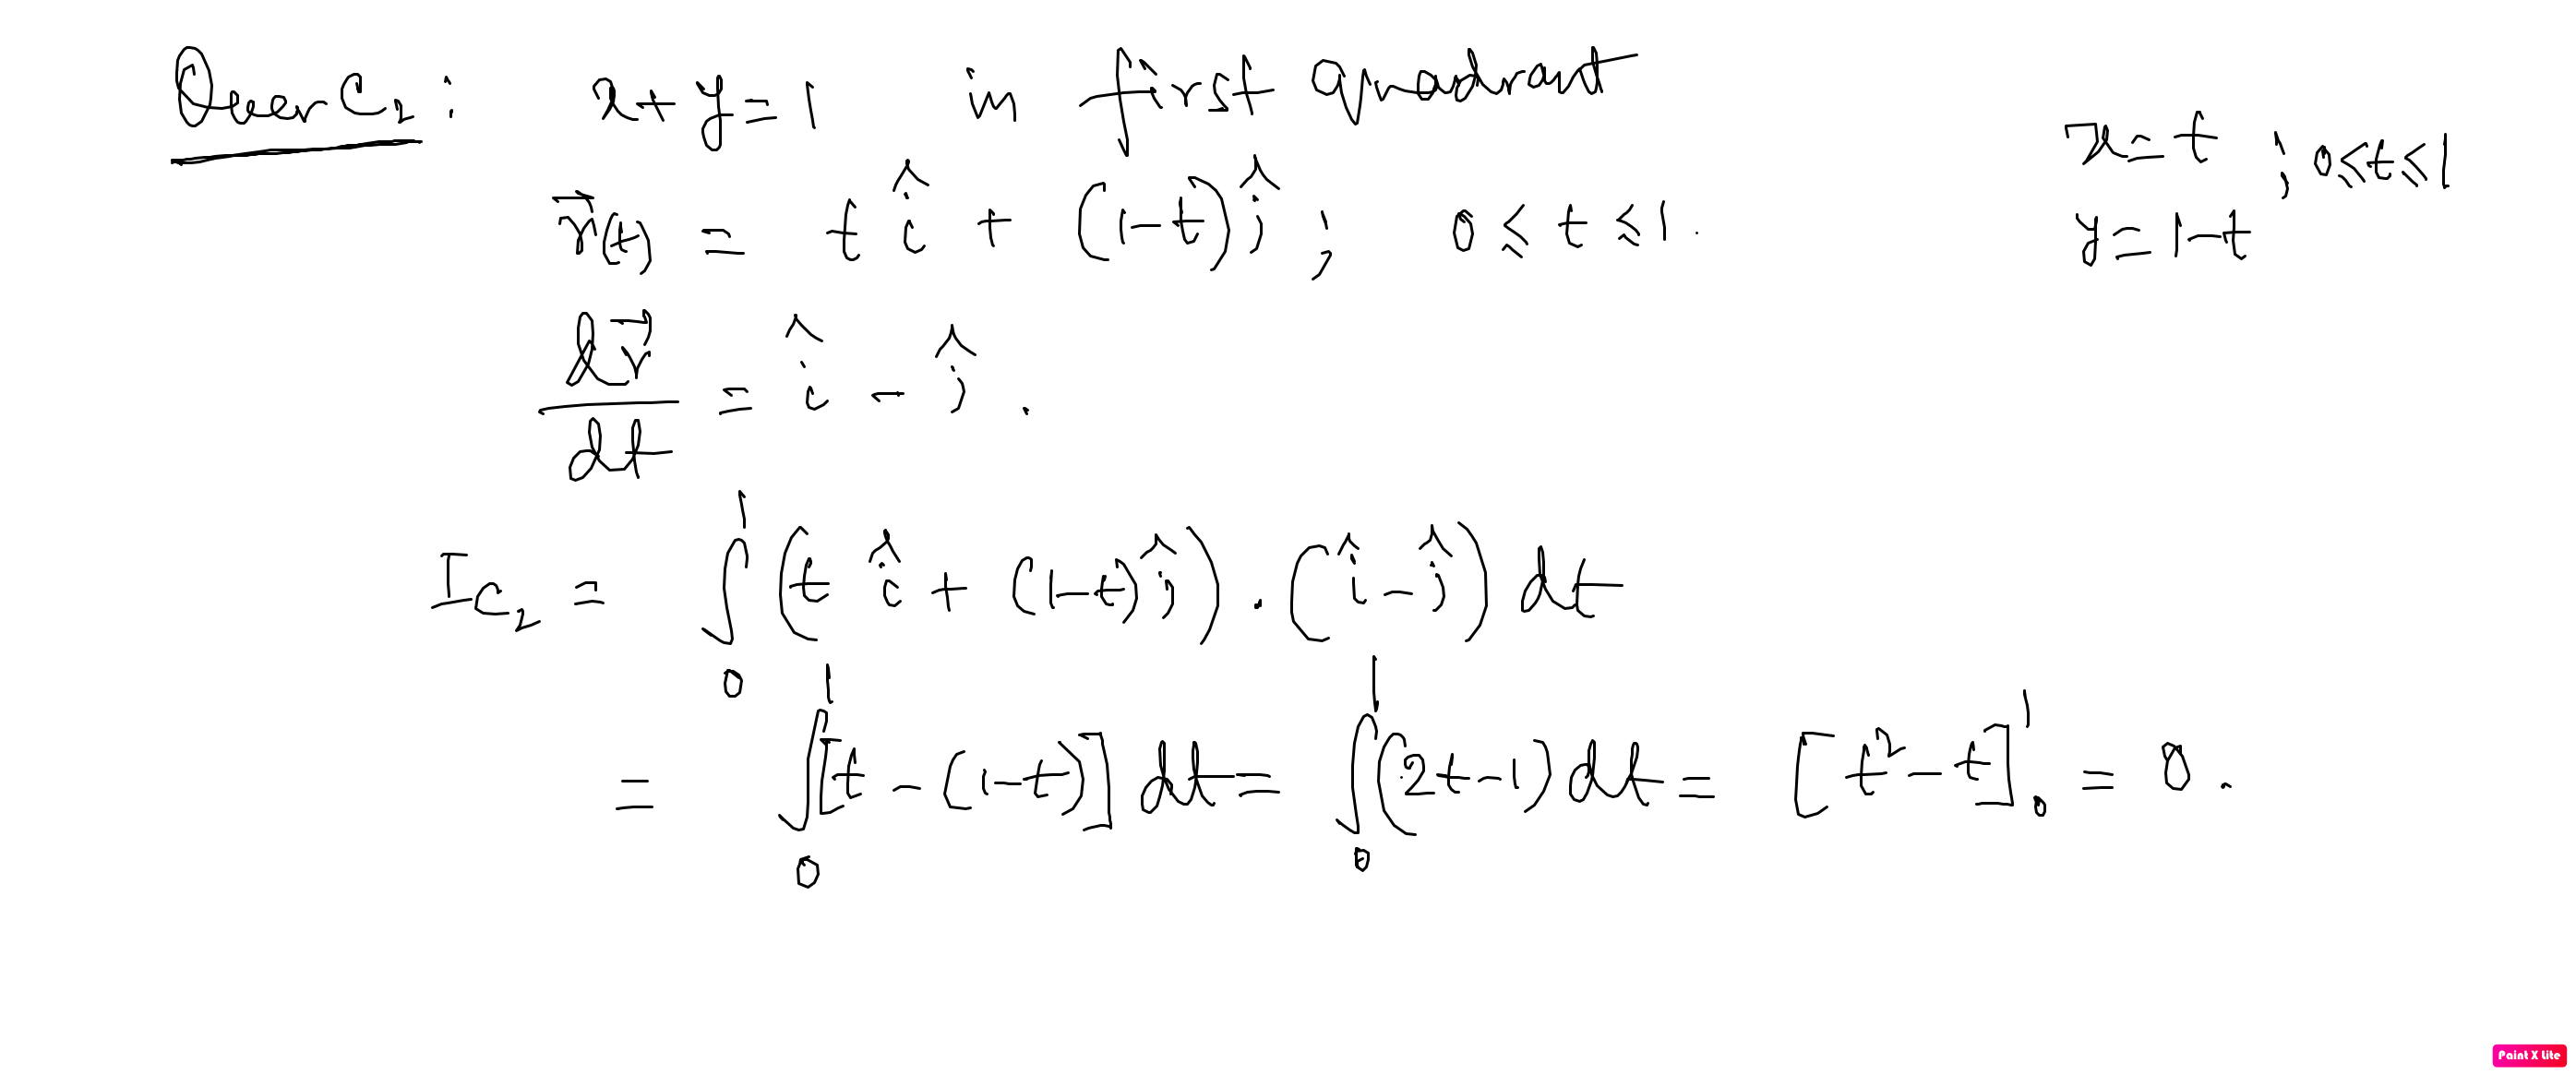 Over C₂ : x + y = 1 in first quadrant
x = t ; 0 ≤ t ≤ 1
y = 1-t
r⃗(t) = t î + (1-t) ĵ ; 0 ≤ t ≤ 1.
dr⃗/dt = î - ĵ .
I_C₂ = ∫₀¹ (t î + (1-t) ĵ) . (î - ĵ) dt
= ∫₀¹ [t - (1-t)] dt = ∫₀¹ (2t-1) dt = [t² - t]₀¹ = 0 .
Paint X Lite